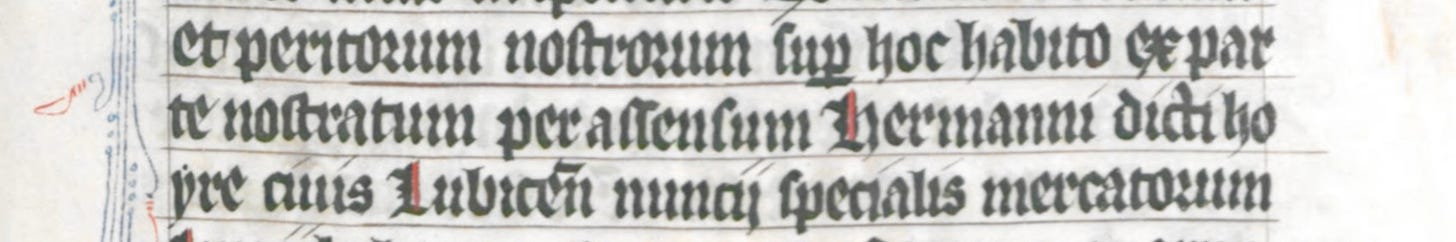 et peritorum nostrorum sup hoc habito ex par
te nostratum per assensum Hermanni dicti ho
yre ciuis Lubicen̄ nuncij specialis mercatorum